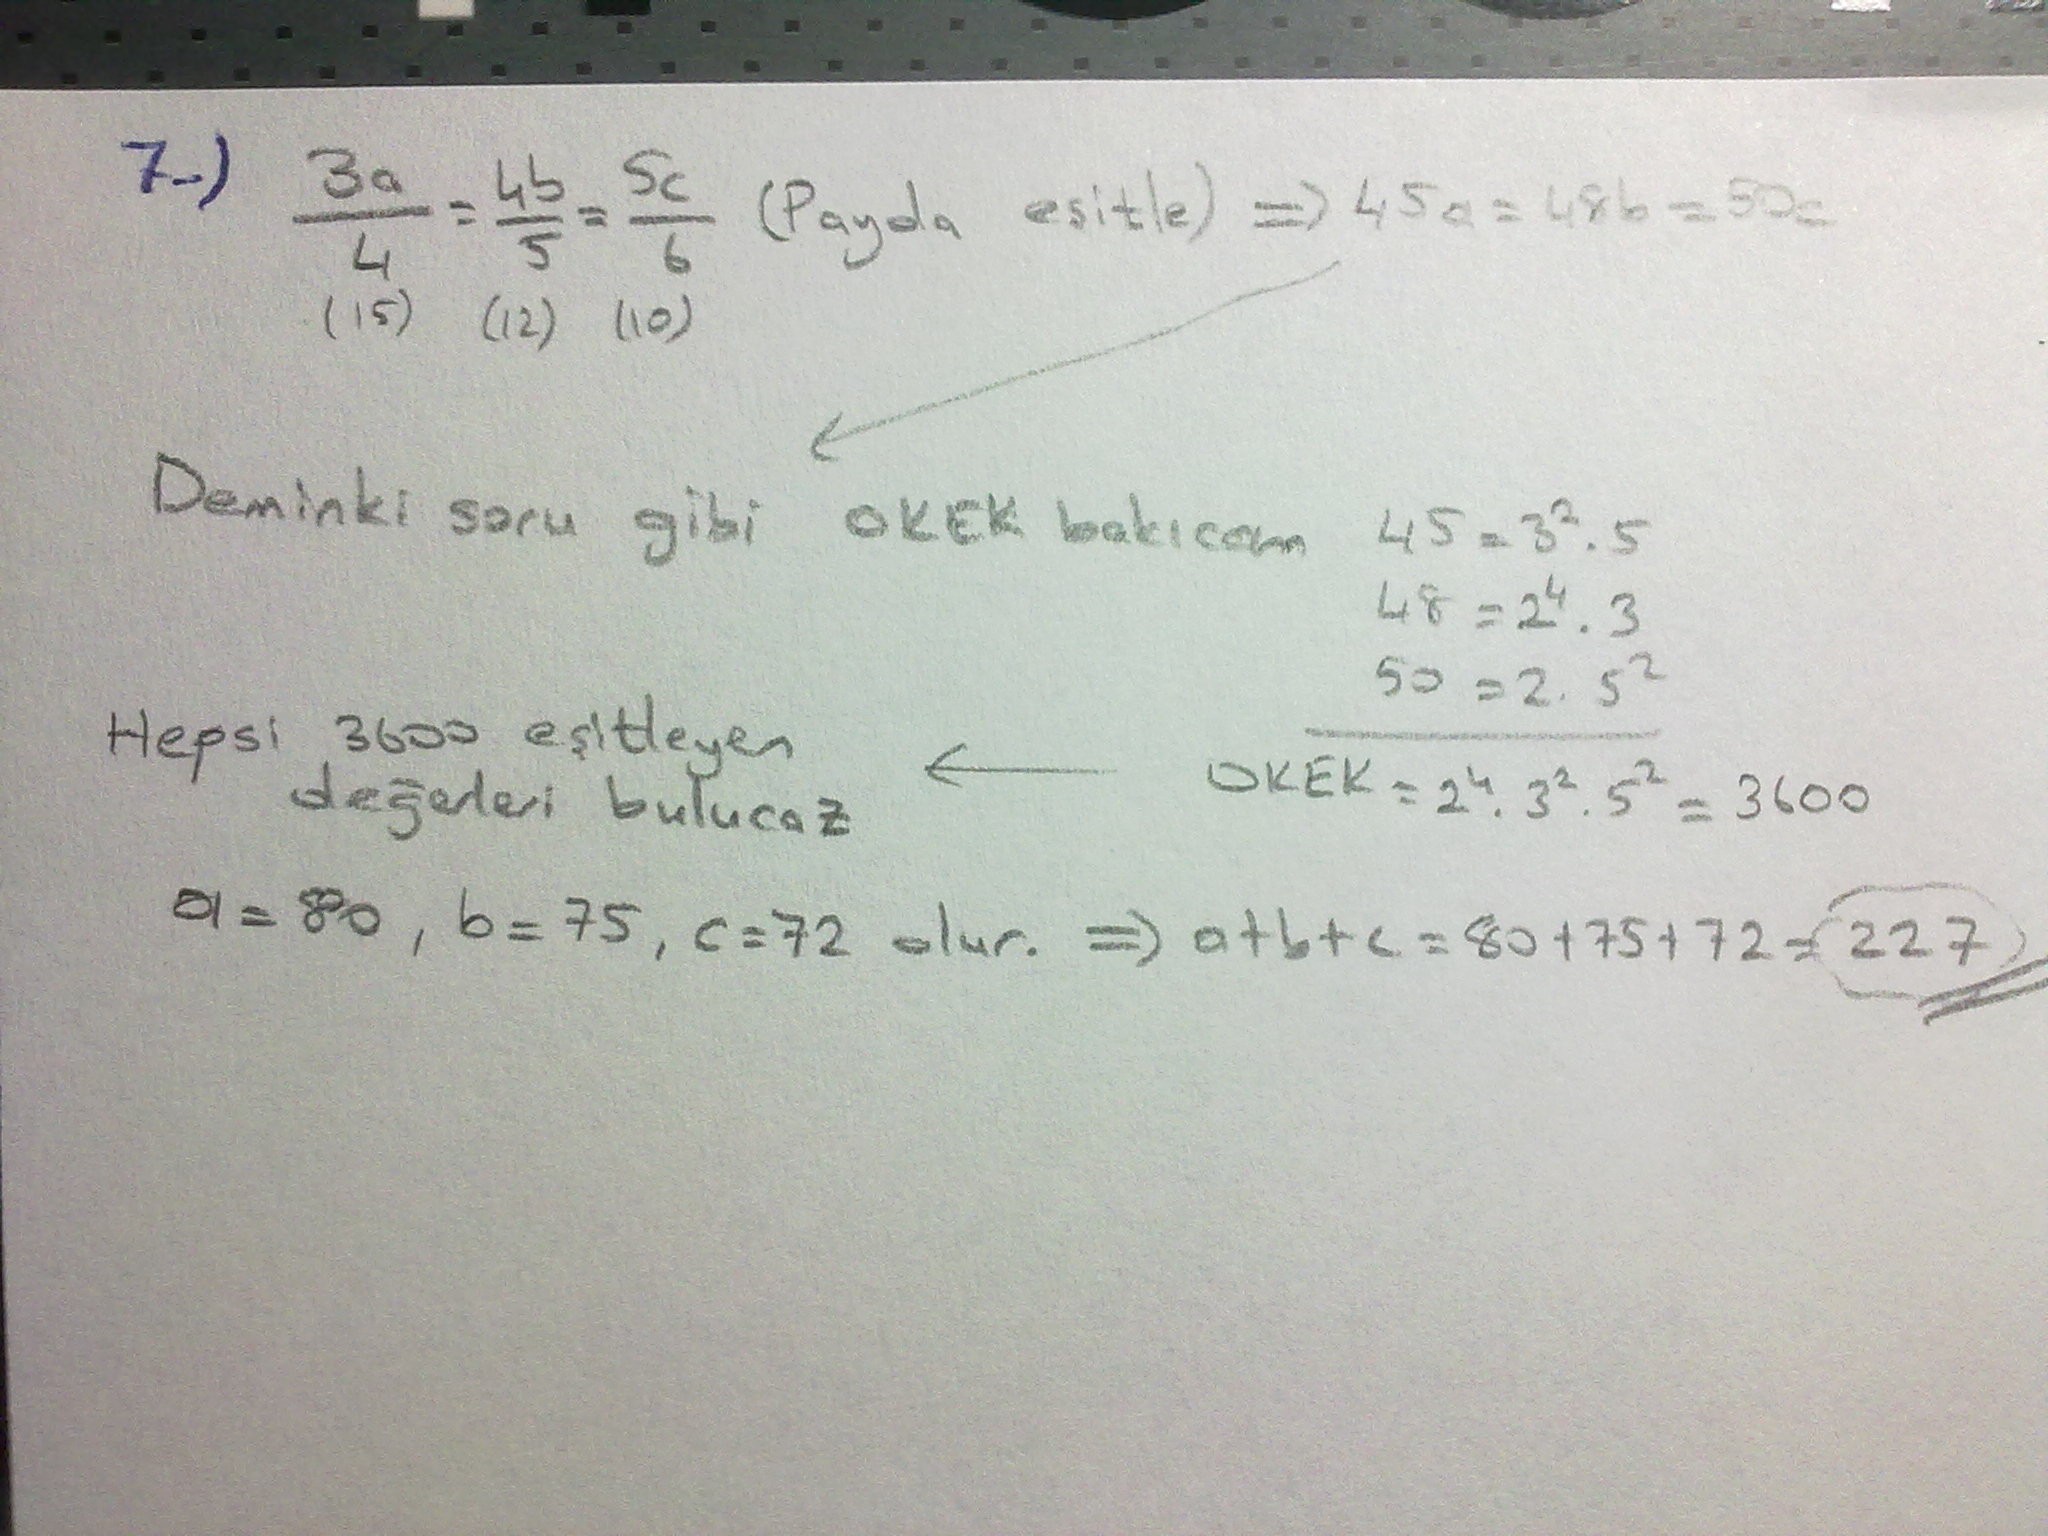 7-) 3a/4 = 4b/5 = 5c/6 (Payda eşitle) => 45a = 48b = 50c
(15) (12) (10)
Deminki soru gibi OKEK bakıcam 45 = 3². 5
48 = 2⁴. 3
50 = 2. 5²
Hepsi 3600 eşitleyen
değerleri bulucaz
OKEK = 2⁴. 3². 5² = 3600
a = 80, b = 75, c = 72 olur. => a+b+c = 80+75+72 = 227